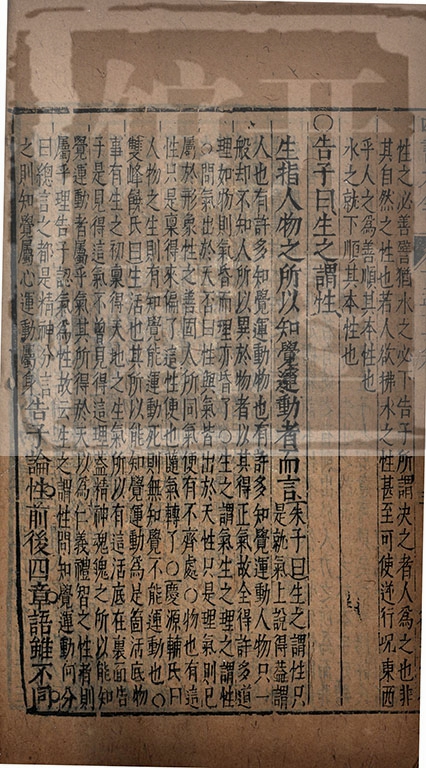 性之必善譬猶水之必下告子所謂决之者人爲之也非
其自然之性也若人欲拂水之性甚至可使逆行况東西
乎人之爲善順其本性也
水之就下順其本性也
○告子曰生之謂性
生指人物之所以知覺運動者而言朱子曰生之謂性只
是就氣上說得蓋謂
人也有許多知覺運動物也有許多知覺運動人物只一
般却不知人所以異於物者以其得正氣故全得許多道
理如物則氣昏而理亦昏了○生之謂氣生之理之謂性
○問氣出於天否曰性與氣皆出於天性只是理氣則已
屬於形象性之善固人所同氣便有不齊處○物也有這
性只是稟得來偏了這性便也隨氣轉了○慶源輔氏曰
人物之生則有知覺能運動死則無知覺不能運動也○
雙峰饒氏曰生活也其所以能知覺運動爲是箇活底物
事有生之初稟得天地之生氣所以有這活底在裏面告
子是見得這氣不曾見得這理蓋精神魂魄之所以能知
覺運動者屬乎氣其所得於天以爲仁義禮智之性者則
屬乎理告子認氣爲性故云生之謂性問知覺運動何分
曰總言之都是精神分言
之則知覺屬心運動屬身告子論性前後四章語雖不同